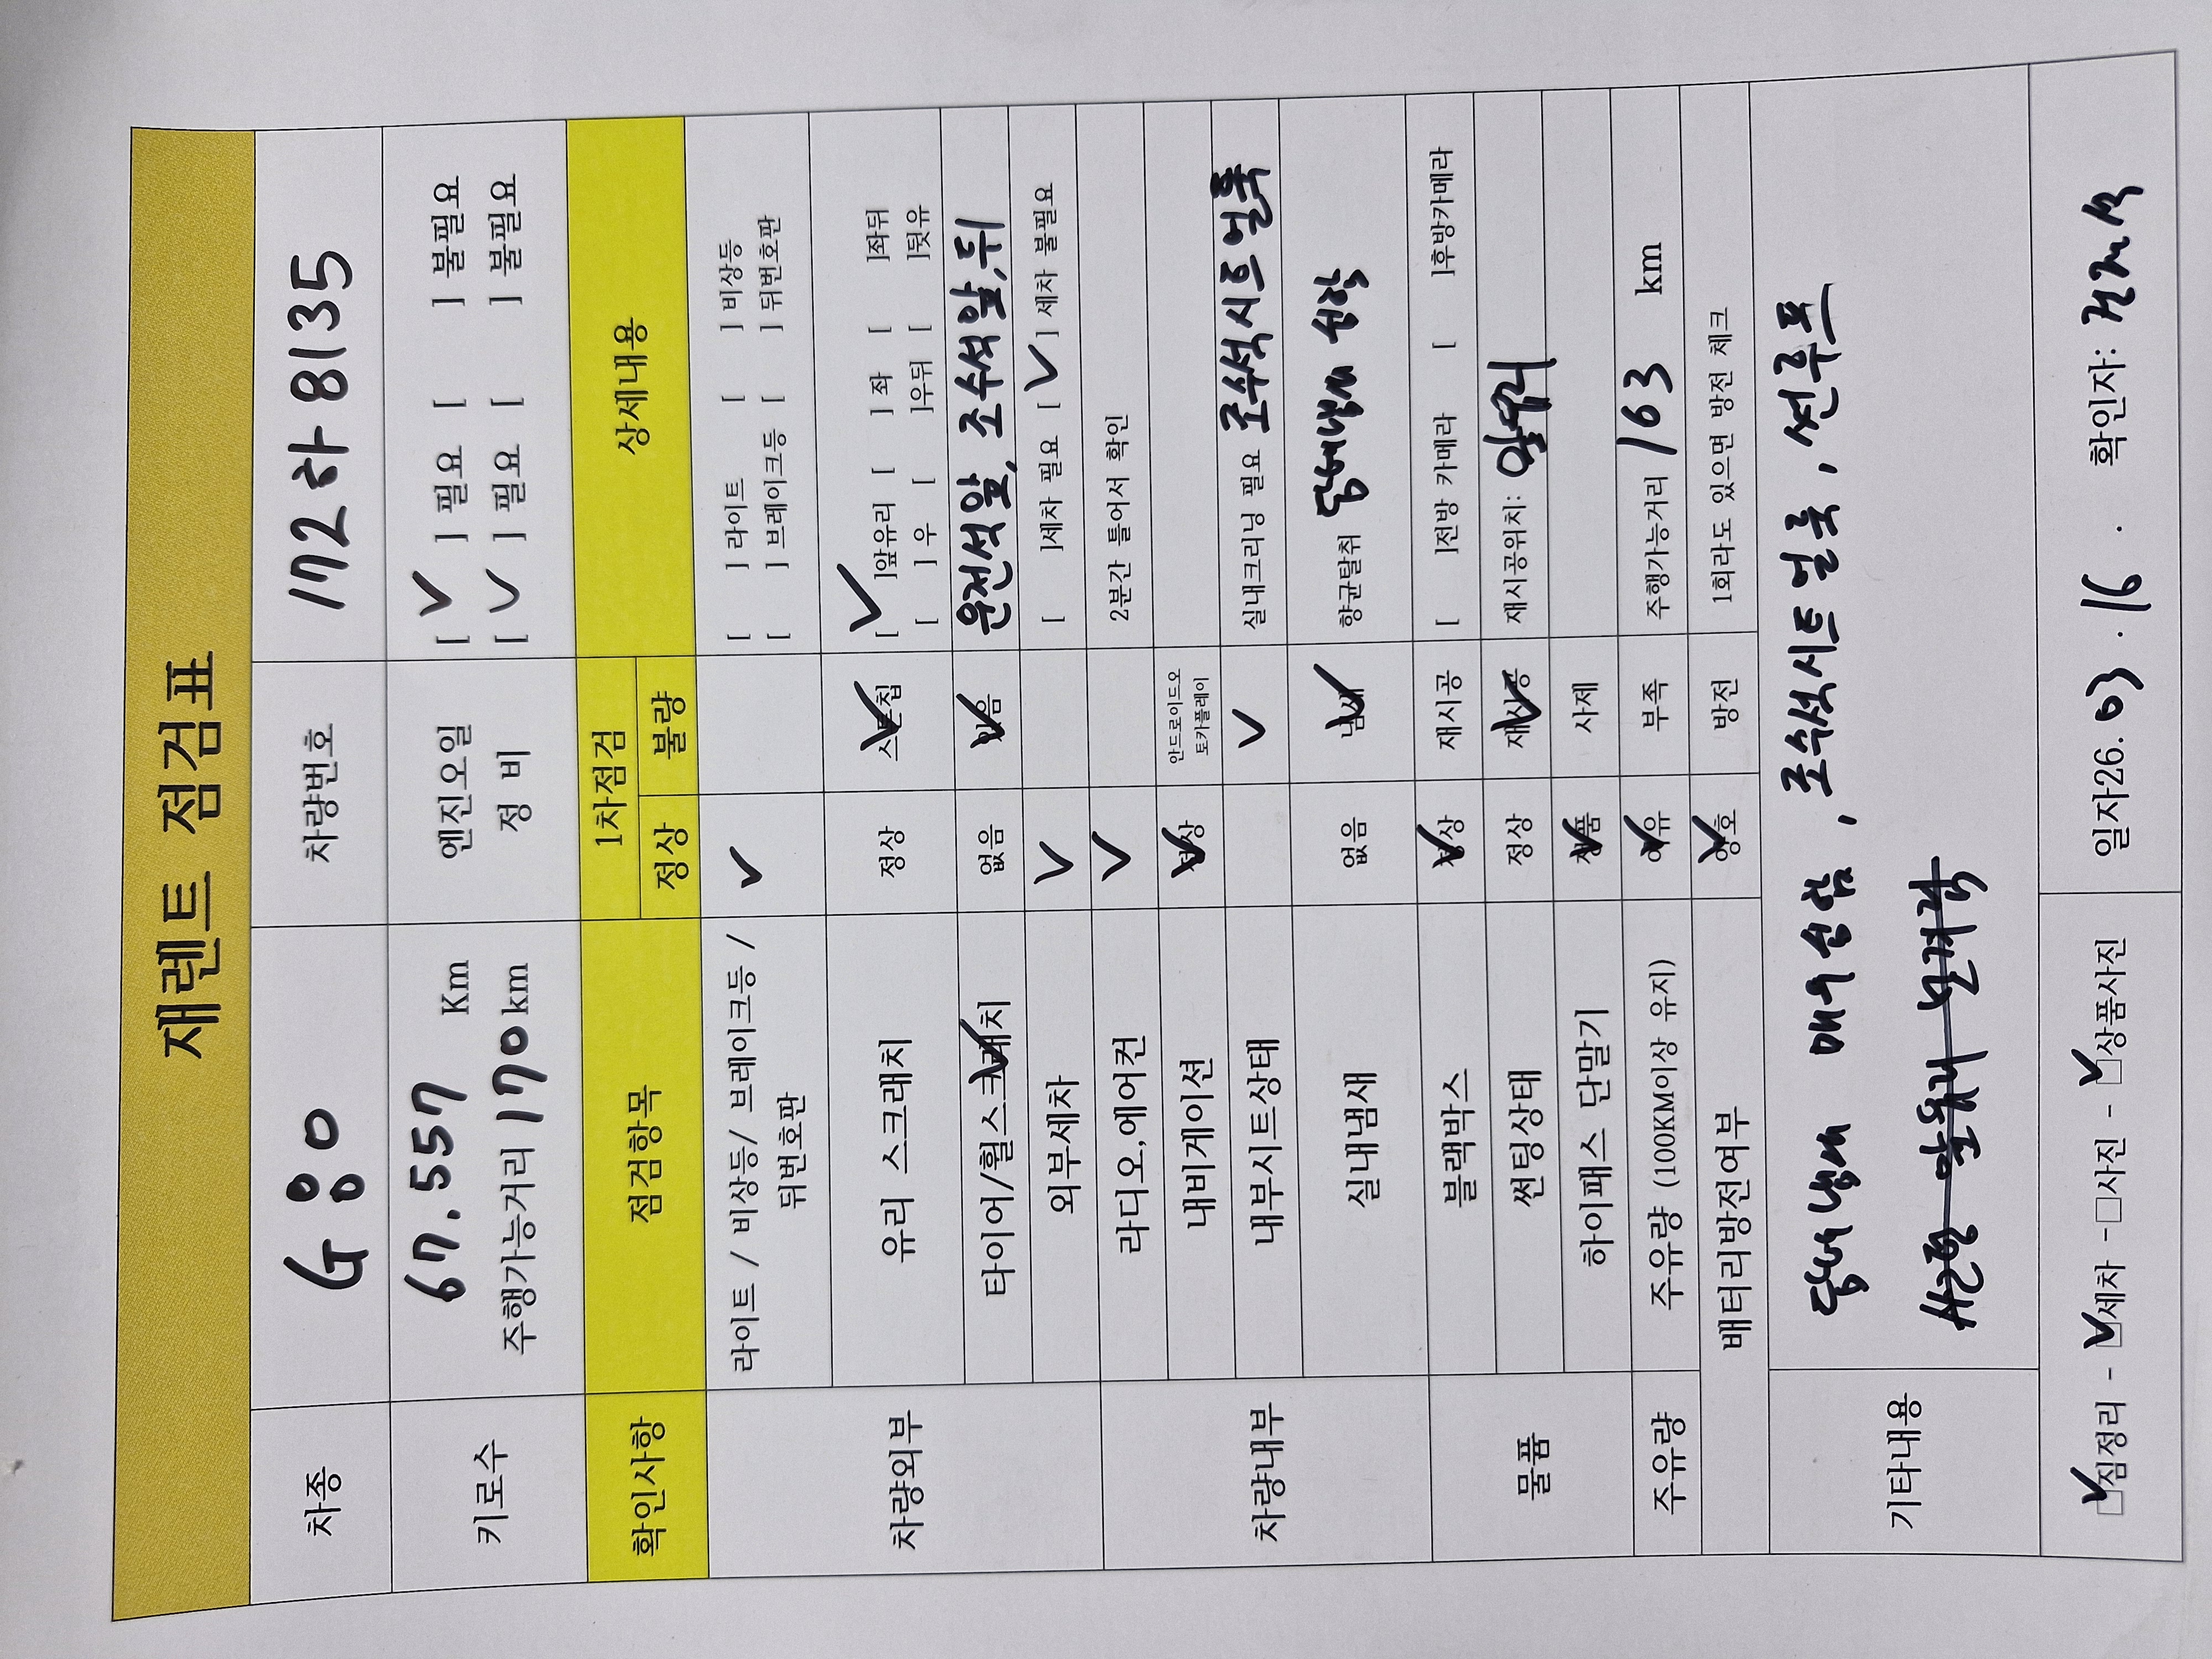 재렌트 점검표
차종 G80 차량번호 172하8135
키로수 67.557 Km 엔진오일 [ V ] 필요 [ ] 불필요
주행가능거리 170km 정 비 [ V ] 필요 [ ] 불필요
확인사항 점검항목 1차점검 상세내용
정상 불량
차량외부 라이트 / 비상등/ 브레이크등 / V [ ] 라이트 [ ] 비상등
뒤번호판 [ ] 브레이크등 [ ] 뒤번호판
유리 스크래치 정상 스톤칩 V [ V ]앞유리 [ ] 좌 [ ]좌뒤
[ ] 우 [ ]우뒤 [ ]뒷유
타이어/휠스크래치 V 없음 있음 V 운전석앞, 조수석앞,뒤
외부세차 V [ ]세차 필요 [ V ] 세차 불필요
차량내부 라디오,에어컨 V 2분간 틀어서 확인
내비게이션 정상 V 안드로이드오
토카플레이
내부시트상태 V 실내크리닝 필요 조수석시트얼룩
실내냄새 없음 냄새 V 향균탈취 담배냄새
물품 블랙박스 정상 V 재시공 [ ]전방 카메라 [ ]후방카메라
썬팅상태 정상 재시공 V 재시공위치: 앞유리
하이패스 단말기 정품 V 사제
주유량 주유량 (100KM이상 유지) 여유 V 부족 주행가능거리 163 km
배터리방전여부 양호 V 방전 1회라도 있으면 방전 체크
기타내용 담배냄새 매우심함, 조수석시트얼룩, 썬루프
V 짐정리 - V 세차 - □사진 - V 상품사진 일자26. 03 . 16 . 확인자: